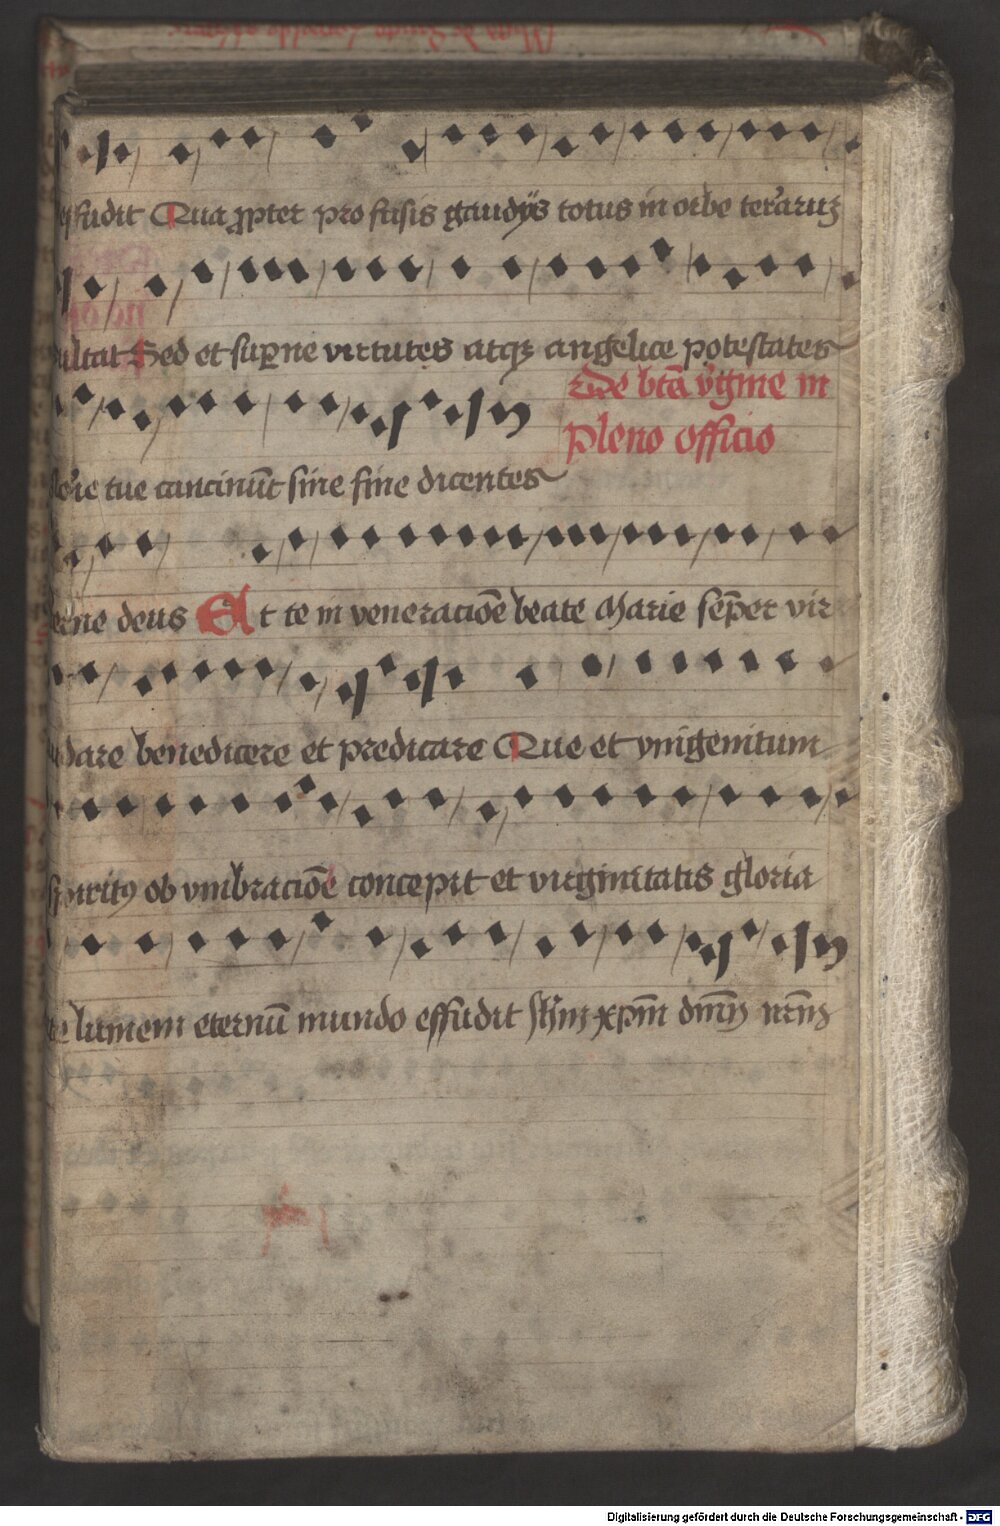 fudit Qua ꝓpter pro fusis gaudijs totus in orbe terraruꝫ
ultat Sed et suꝑne virtutes atqꝫ angelice potestates
rie tue concinūt sine fine dicentes
De btā v̉gine in
pleno officio
erne deus Et te in veneraciōe beate Marie sēper vir
dare benedicere et predicare Que et vnigenitum
spiritꝯ ob vmbraciōe concepit et virginitatis gloria
te lumem eternū mundo effudit Ihm xp̄m dm̄ nr̄m
Digitalisierung gefördert durch die Deutsche Forschungsgemeinschaft - DFG